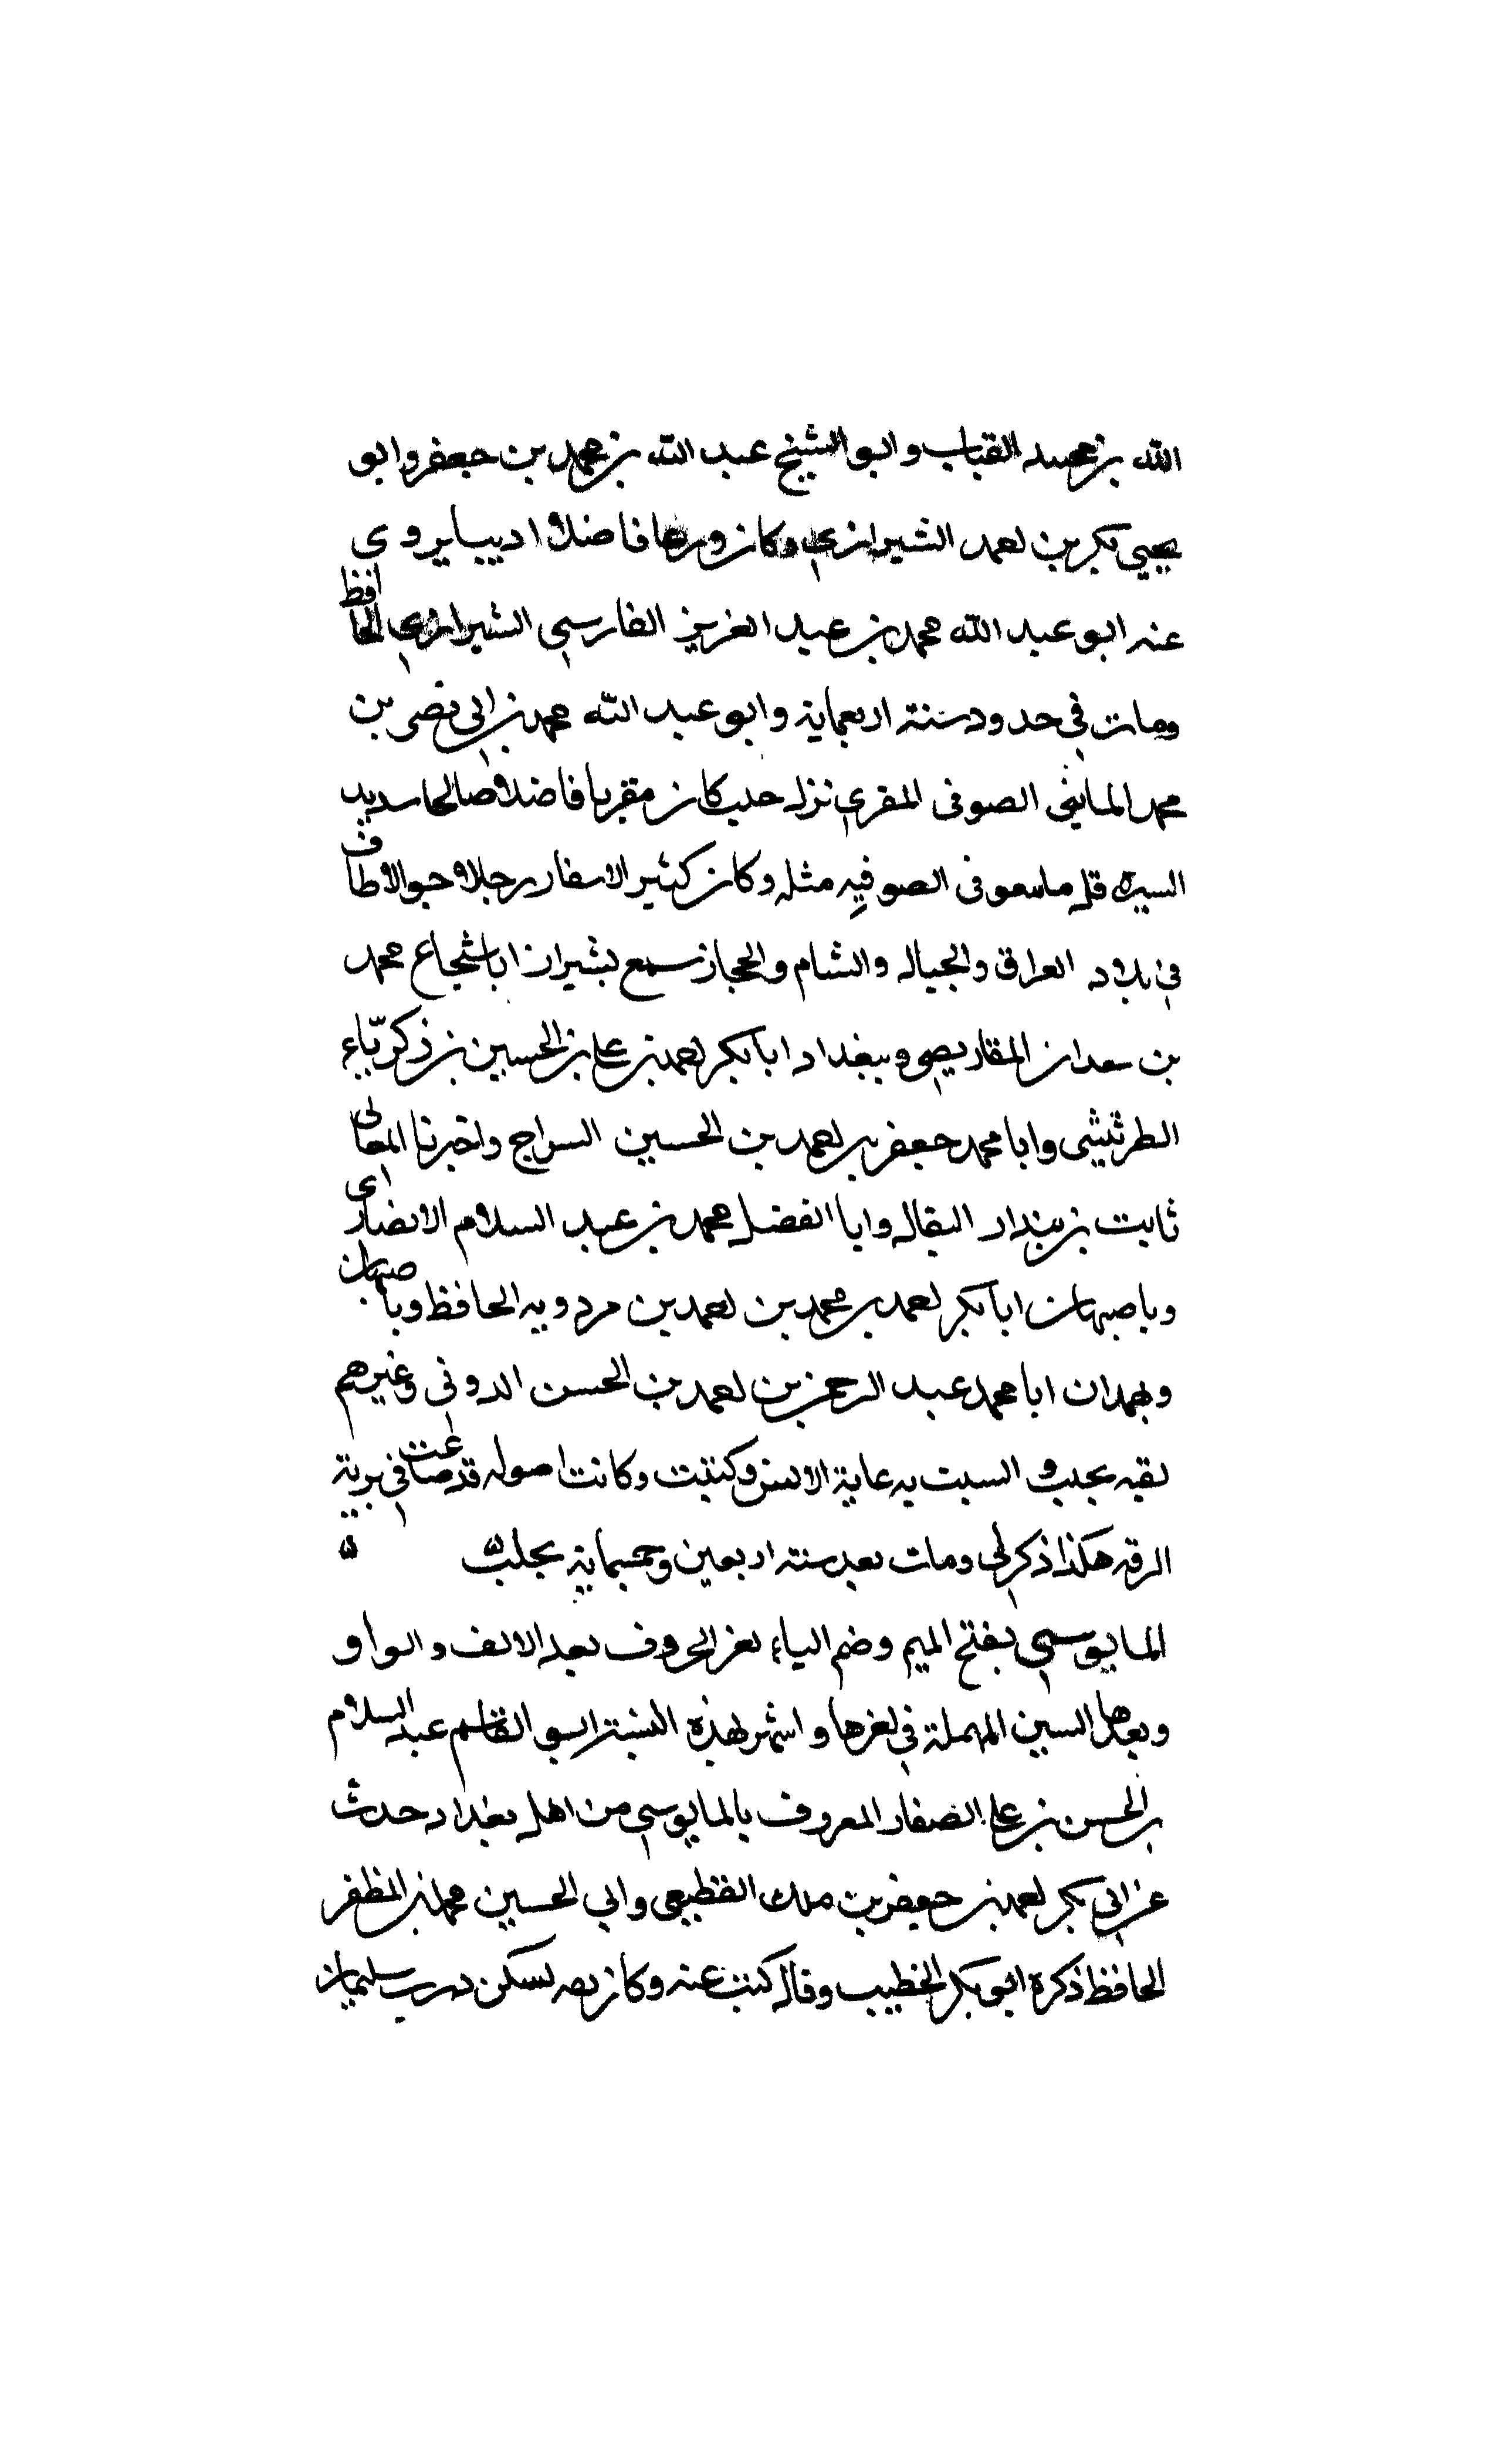 الله بن محمد القباب وابو الشيخ عبد الله بن محمد بن جعفر وابو
يحيى بكر بن احمد الشيرازي وكان ورعا فاضلا اديبا يروى
عنه ابو عبد الله محمد بن عبد العزيز الفارسي الشيرازي الحافظ
ومات في حدود سنة اربعماية وابو عبد الله محمد بن ابي نصر بن
محمد المايني الصوفى المقري نزل حلب كان مقريا فاضلا صالحا سديد
السيرة قل ما هو فى الصوفيه مثله وكان كثير الاسفار رجلا جوالا طاف
في بلاد العراق والجبال والشام والحجاز سمع بشيراز ابا شجاع محمد
بن سعدان المقاريضي وببغداد ابا بكر احمد بن علي بن الحسين بن زكرياء
الطرثيثى وابا محمد جعفر بن احمد بن الحسين السراج واخبرنا المعالى
ثابت بن بندار البقال وابا الفضل محمد بن عبد السلام الانصارى
وباصبهان ابا بكر احمد بن محمد بن احمد بن مردويه الحافظ وباصبهان
وبهمدان ابا محمد عبد الرحمن بن احمد بن الحسن الدونى وغيرهم
لقيه بحلب و انست به غاية الانس وكتبت وكانت اصوله قد ضاعت في برية
الرقه هكذا ذكر لي ومات بعد سنة اربعين وخمسماية بحلب ه ه
المايوسي بفتح الميم وضم الياء اخر الحروف بعد الالف والواو
وبعدها السين المهملة في اخرها واشتهر بهذه النسبة ابو القاسم عبد السلام
بن الحسن بن علي الصفار المعروف بالمايوسي من اهل بغداد حدث
عن ابي بكر احمد بن جعفر بن ملك القطيعي وابي الحسين محمد بن المظفر
الحافظ ذكره ابو بكر الخطيب وقال كتبت عنه وكان يسكن درب سليمان